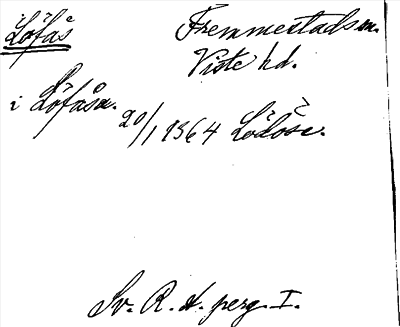 Löfås
Fremmestads sn.
Viste hd.
i Löfåsa. 20/1 1364 Lödöse.
Sv. R. A. perg. I.